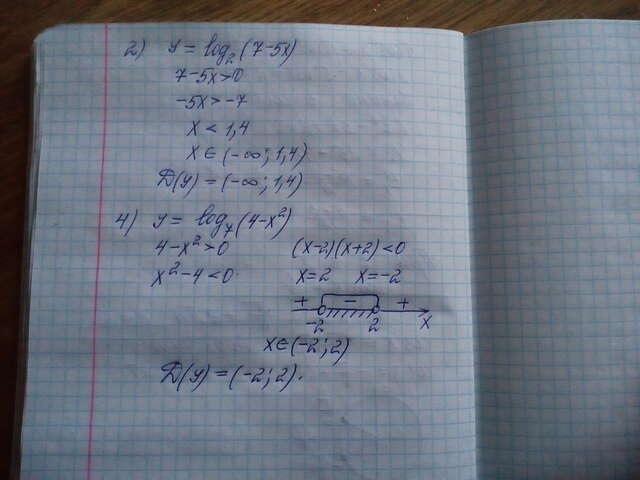 2) y = log₂(7-5x)
7-5x>0
-5x>-7
x < 1,4
x ∈ (-∞; 1,4)
D(y) = (-∞; 1,4)
4) y = log₇(4-x²)
4-x²>0 (x-2)(x+2)<0
x²-4<0 x=2 x=-2
+ - +
-2 2 x
x∈(-2; 2)
D(y) = (-2; 2).